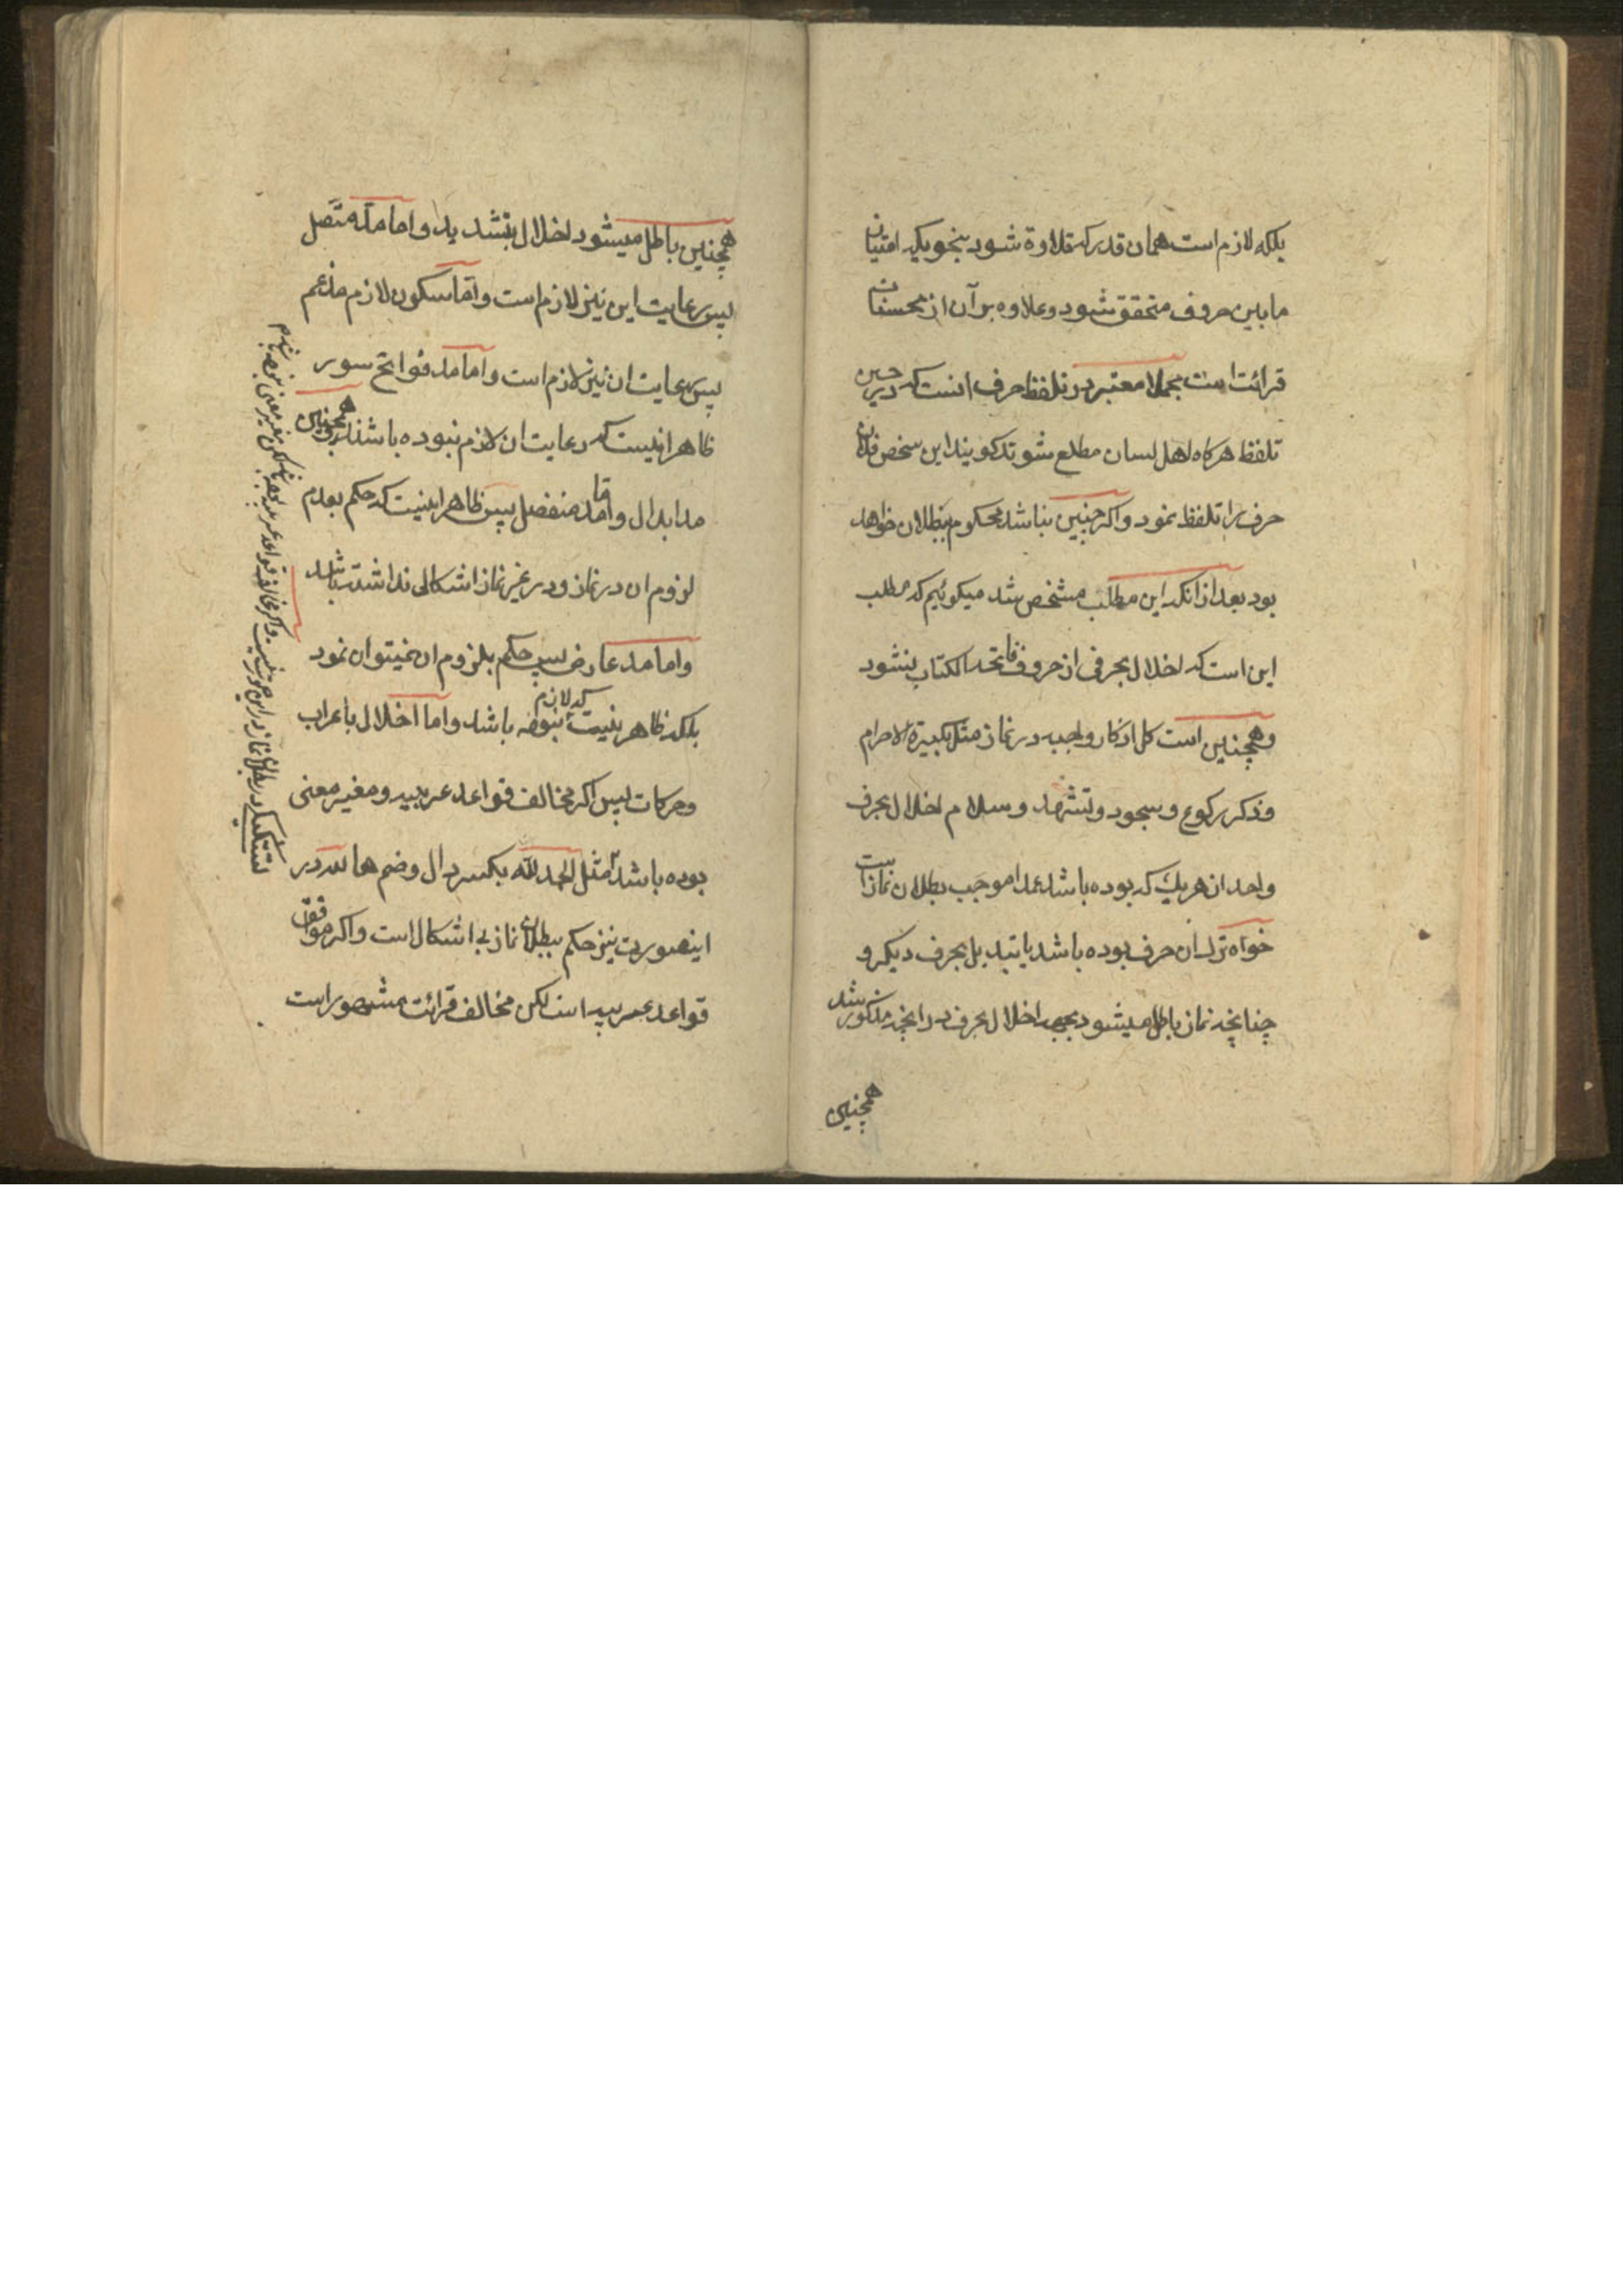 بلکه لازم است همان قدر که تلاوة شود بنحویکه امتیاز
مابین حروف متحقق شود وعلاوه بر آن از محسنات
قرائت است مجملا معتبر در تلفظ حرف اینست که در حین
تلفظ هرکاه اهل لسان مطلع شوند کویند این شخص فلان
حرف را تلفظ نمود واکر چنین نباشد محکوم ببطلان خواهد
بود بعد از انکه این مطلب مشخص شد میکوئیم که مطلب
این است که اخلال بحرفی از حروف فاتحه الکتاب نشود
وهمچنین است کل اذکار واجبه در نماز مثل تکبیرة الاحرام
وذکر رکوع وسجود وتشهد وسلام اخلال بحرف
واحد از هریك که بوده باشد عمدا موجب بطلان نماز است
خواه ترك ان حرف بوده باشد یا تبدیل بحرف دیکر و
چنانچه نماز باطل میشود بجهة اخلال بحرف در انچه مذکور شد
همچنین
همچنین باطل میشود اخلال بتشدید واما مد متصل
پس رعایت این نیز لازم است واما سکون لازم مدغم
پس رعایت ان نیز لازم است واما مد فواتح سور
ظاهر اینست که رعایت ان لازم نبوده باشد وهمچنین
مد ابدال واما مد منفصل پس ظاهر اینست که حکم بعدم
لزوم ان در نماز ودر غیر نماز اشکالی نداشته باشد
واما مد عارض پس حکم بلزوم ان نمیتوان نمود
بلکه ظاهر اینست که لازم نبوده باشد واما اخلال باعراب
وحرکات پس اکر مخالف قواعد عربیه ومغیر معنی
بوده باشد مثل الحمد لله بکسر دال وضم هاء لله در
اینصورت نیز حکم ببطلان نماز بی اشکال است واکر موافق
قواعد عربیه است لکن مخالف قرائت مشهور است
واکر مخالف قواعد عربیه بوده باشد لکن مغیر معنی نبوده باشد